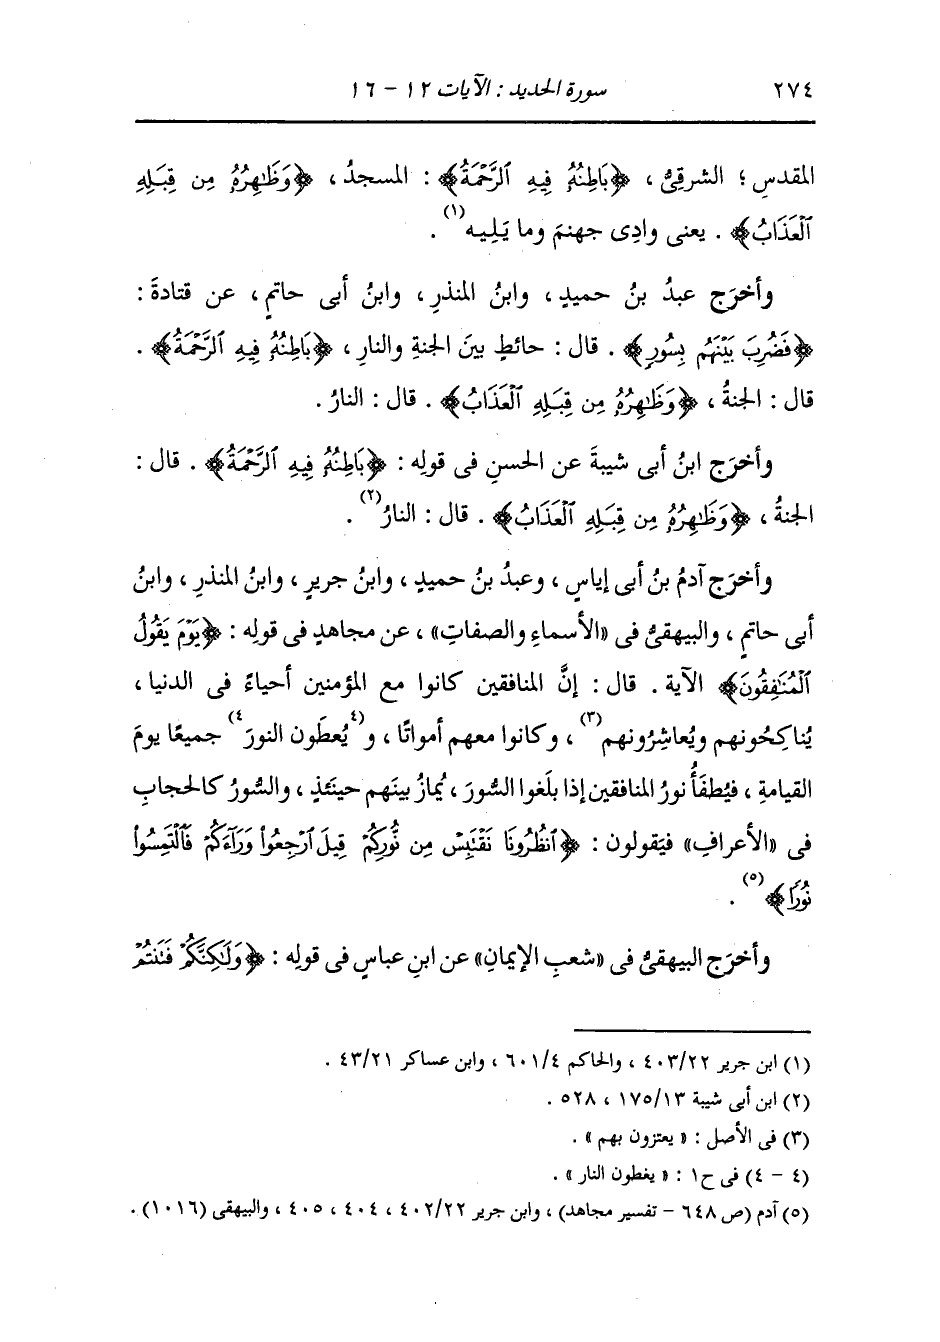 ٢٧٤ سورة الحديد : الآيات ١٢ - ١٦
المقدسِ ؛ الشرقِىُّ ، ﴿بَاطِنُهُۥ فِيهِ ٱلرَّحْمَةُ﴾ : المسجدُ ، ﴿وَظَٰهِرُهُۥ مِن قِبَلِهِ
ٱلْعَذَابُ﴾ . يعنى وادِى جهنمَ وما يَلِيه(١) .
وأخرَج عبدُ بنُ حميدٍ ، وابنُ المنذرِ ، وابنُ أبى حاتمٍ ، عن قتادةَ :
﴿فَضُرِبَ بَيْنَهُم بِسُورٍ﴾ . قال : حائطٍ بينَ الجنةِ والنارِ ، ﴿بَاطِنُهُۥ فِيهِ ٱلرَّحْمَةُ﴾ .
قال : الجنةُ ، ﴿وَظَٰهِرُهُۥ مِن قِبَلِهِ ٱلْعَذَابُ﴾ . قال : النارُ .
وأخرَج ابنُ أبى شيبةَ عن الحسنِ فى قولِه : ﴿بَاطِنُهُۥ فِيهِ ٱلرَّحْمَةُ﴾ . قال :
الجنةُ ، ﴿وَظَٰهِرُهُۥ مِن قِبَلِهِ ٱلْعَذَابُ﴾ . قال : النارُ(٢) .
وأخرَج آدمُ بنُ أبى إياسٍ ، وعبدُ بنُ حميدٍ ، وابنُ جريرٍ ، وابنُ المنذرِ ، وابنُ
أبى حاتمٍ ، والبيهقىُّ فى «الأسماءِ والصفاتِ» ، عن مجاهدٍ فى قولِه : ﴿يَوْمَ يَقُولُ
ٱلْمُنَٰفِقُونَ﴾ الآية . قال : إنَّ المنافقين كانوا مع المؤمنين أحياءً فى الدنيا ،
يُناكِحُونهم ويُعاشِرُونهم(٣) ، وكانوا معهم أمواتًا ، و(٤يُعطَون النورَ٤) جميعًا يومَ
القيامةِ ، فيُطفَأُ نورُ المنافقين إذا بلَغوا السُّورَ ، يُمازُ بينَهم حينَئذٍ ، والسُّورُ كالحجابِ
فى «الأعرافِ» فيَقولون : ﴿ٱنظُرُونَا نَقْتَبِسْ مِن نُّورِكُمْ قِيلَ ٱرْجِعُوا۟ وَرَآءَكُمْ فَٱلْتَمِسُوا۟
نُورًا﴾(٥) .
وأخرَج البيهقىُّ فى «شعبِ الإيمانِ» عن ابنِ عباسٍ فى قولِه : ﴿وَلَٰكِنَّكُمْ فَتَنتُمْ
(١) ابن جرير ٤٠٣/٢٢ ، والحاكم ٦٠١/٤ ، وابن عساكر ٤٣/٢١ .
(٢) ابن أبى شيبة ١٧٥/١٣ ، ٥٢٨ .
(٣) فى الأصل : « يعتزون بهم » .
(٤ - ٤) فى ح١ : « يغطون النار » .
(٥) آدم (ص ٦٤٨ - تفسير مجاهد) ، وابن جرير ٤٠٢/٢٢ ، ٤٠٤ ، ٤٠٥ ، والبيهقى (١٠١٦) .